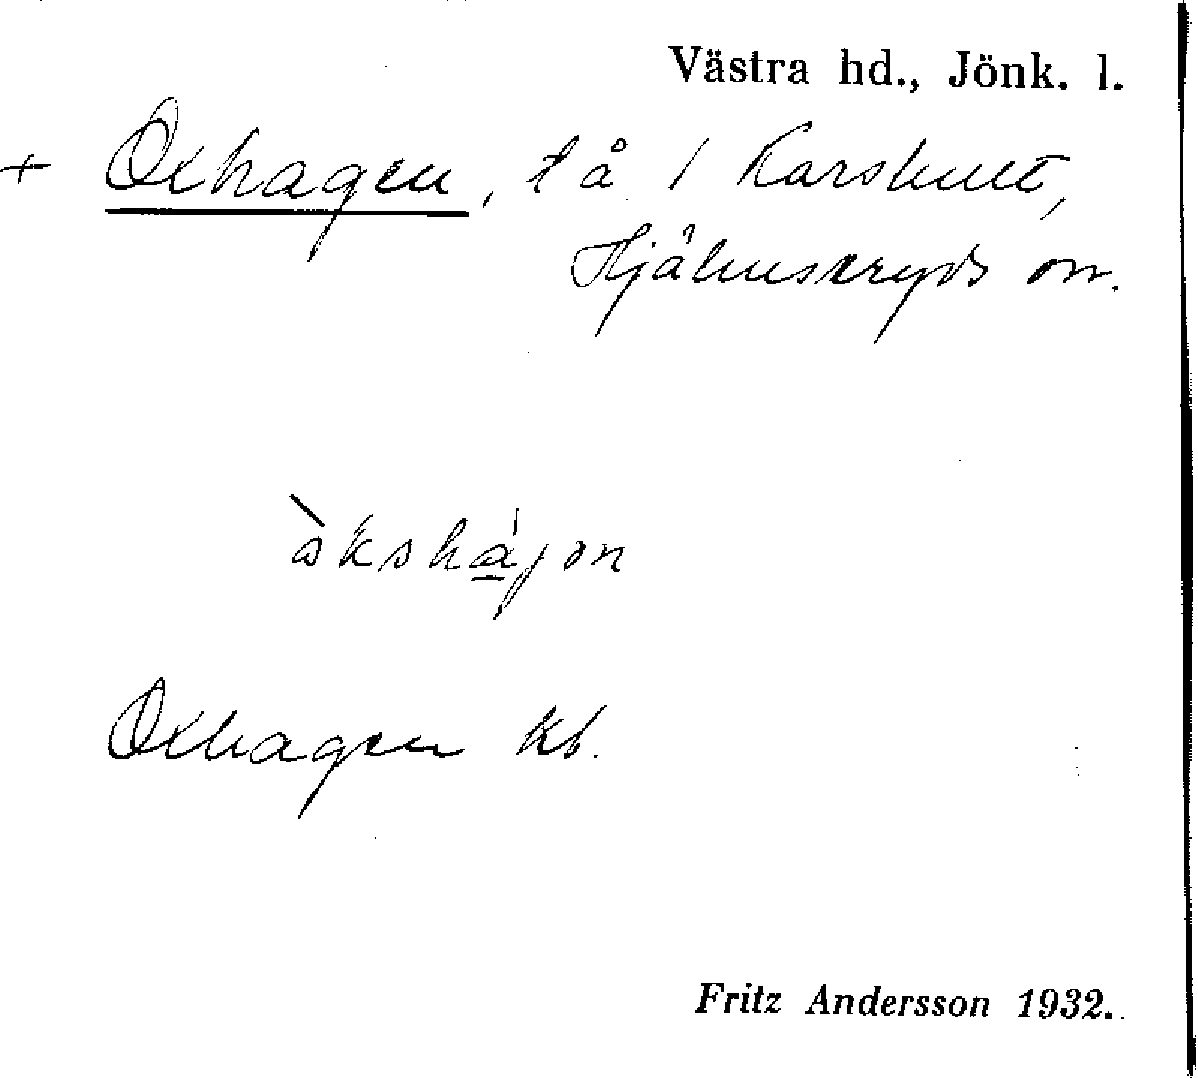 Västra hd., Jönk. l.
+ Oxhagen, tå / Karshult,
Hjälmseryds sn.
åkshágen
Oxhagen kb.
Fritz Andersson 1932.